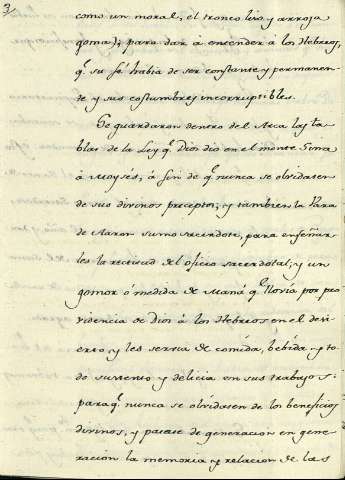 3
como un moral, el tronco liso y arroja
goma); para dar à entender à los Hebreos,
qᵉ su fé habia de ser constante y permanen-
te y sus costumbres incorruptibles.
Se guardaron dentro del Arca las ta-
blas de la Ley qᵉ Dios dio en el monte Sina
à Moysés, à fin de qᵉ nunca se olvidasen
de sus divinos preceptos; y tambien la Vara
de Aaron sumo sacerdote, para enseñar-
les la rectitud del oficio sacerdotal; y un
gomor ó medida de Maná qᵉ llovia por pro
videncia de Dios à los Hebreos en el desi-
erto, y les servia de comida, bebida y to-
do sustento y delicia en sus trabajos:
para qᵉ nunca se olvidasen de los beneficios
divinos, y pasase de generacion en gene-
racion la memoria y relacion de las